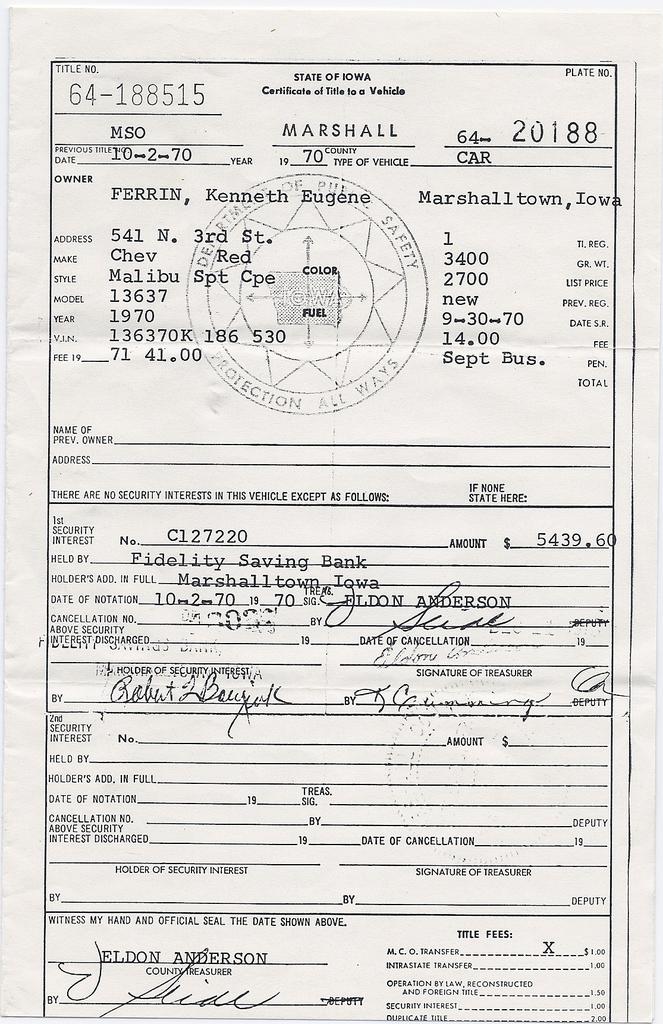 TITLE NO.
64-188515
STATE OF IOWA
Certificate of Title to a Vehicle
PLATE NO.
MSO MARSHALL 64- 20188
PREVIOUS TITLE NO. COUNTY
DATE 10-2-70 YEAR 19 70 TYPE OF VEHICLE CAR
OWNER
FERRIN, Kenneth Eugene Marshalltown, Iowa
ADDRESS 541 N. 3rd St. 1 TI. REG.
MAKE Chev Red 3400 GR. WT.
STYLE Malibu Spt Cpe COLOR 2700 LIST PRICE
MODEL 13637 new PREV. REG.
YEAR 1970 FUEL 9-30-70 DATE S.R.
V.I.N. 136370K 186 530 14.00 FEE
FEE 19 71 41.00 Sept Bus. PEN.
TOTAL
DEPARTMENT OF PUBLIC SAFETY
IOWA
PROTECTION ALL WAYS
NAME OF
PREV. OWNER
ADDRESS
THERE ARE NO SECURITY INTERESTS IN THIS VEHICLE EXCEPT AS FOLLOWS: IF NONE
STATE HERE:
1st
SECURITY
INTEREST No. C127220 AMOUNT $ 5439.60
HELD BY Fidelity Saving Bank
HOLDER'S ADD. IN FULL Marshalltown Iowa
DATE OF NOTATION 10-2-70 19 70 TREAS. SIG. ELDON ANDERSON
CANCELLATION NO. BY DEPUTY
ABOVE SECURITY
INTEREST DISCHARGED 19 DATE OF CANCELLATION 19
FIDELITY SAVINGS BANK,
HOLDER OF SECURITY INTEREST SIGNATURE OF TREASURER
BY Robert L BY DEPUTY
2nd
SECURITY
INTEREST No. AMOUNT $
HELD BY
HOLDER'S ADD. IN FULL
DATE OF NOTATION 19 TREAS. SIG.
CANCELLATION NO. BY DEPUTY
ABOVE SECURITY
INTEREST DISCHARGED 19 DATE OF CANCELLATION 19
HOLDER OF SECURITY INTEREST SIGNATURE OF TREASURER
BY BY DEPUTY
WITNESS MY HAND AND OFFICIAL SEAL THE DATE SHOWN ABOVE.
TITLE FEES:
ELDON ANDERSON
COUNTY TREASURER
BY DEPUTY
M. C. O. TRANSFER X $1.00
INTRASTATE TRANSFER 1.00
OPERATION BY LAW, RECONSTRUCTED
AND FOREIGN TITLE 1.50
SECURITY INTEREST 1.00
DUPLICATE TITLE 2.00